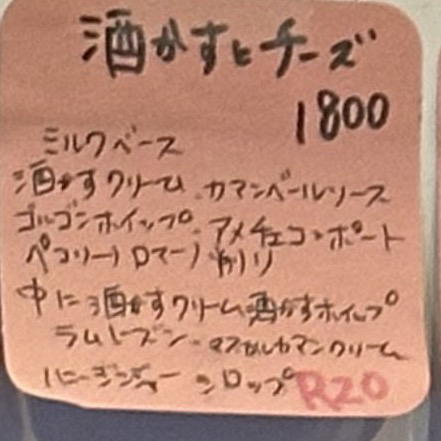 酒かすとチーズ
1800
ミルクベース
酒かすクリーム、カマンベールソース
ゴルゴンホイップ、アメチェコンポート
ペコリーノロマーノ削り
中に酒かすクリーム、酒かすホイップ
ラムレーズン、マスカルカマンクリーム
ハニージンジャーシロップ R20